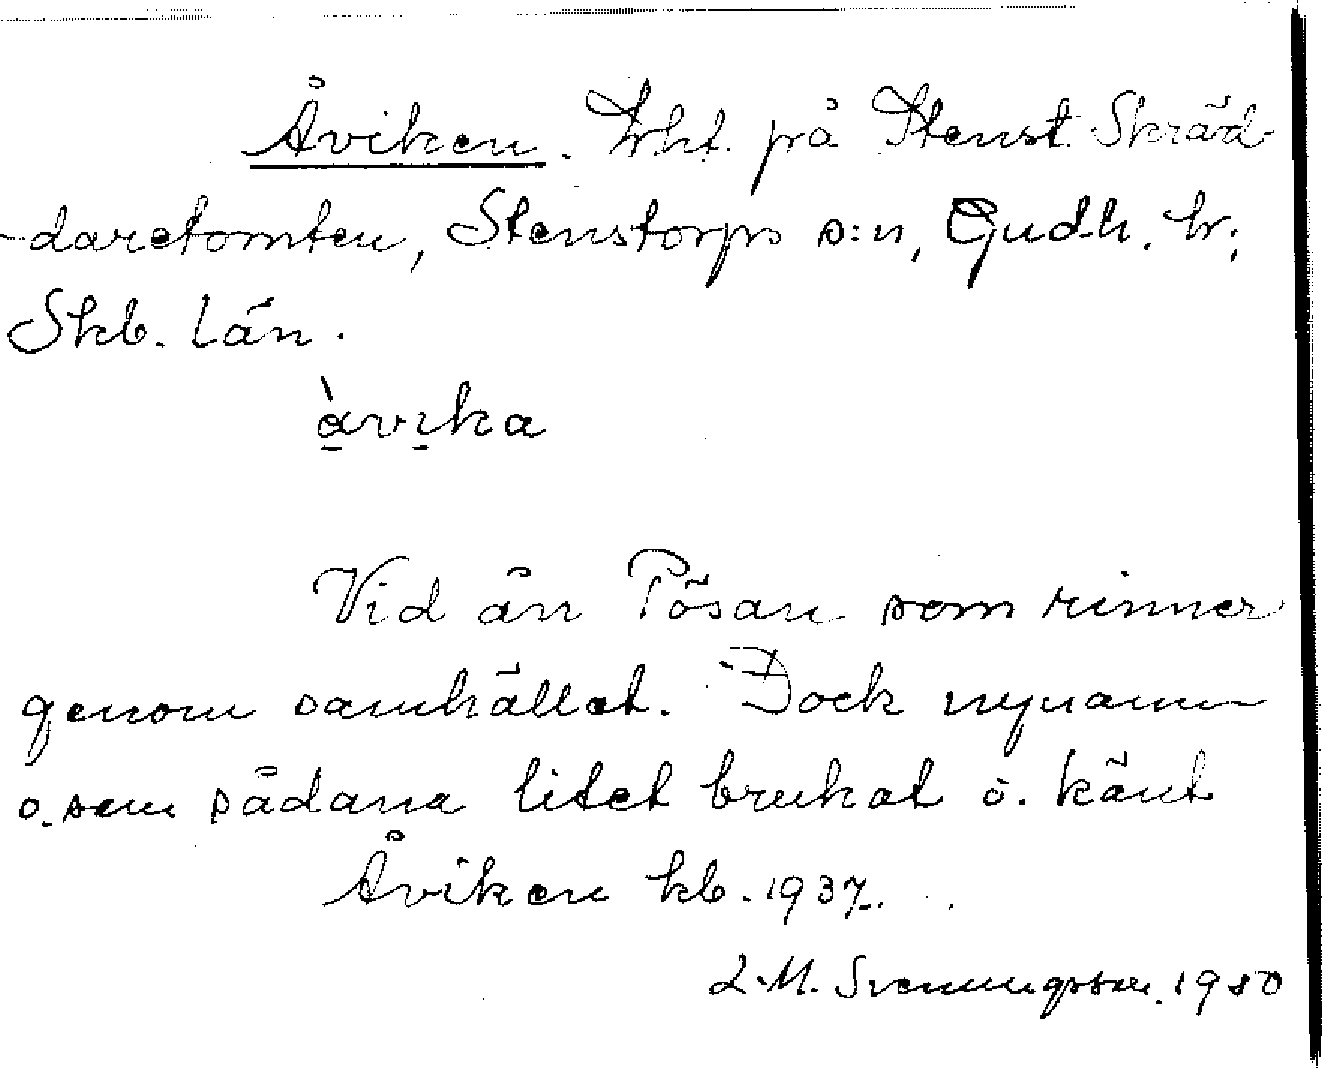 Åviken. Lht. på Stenst. Skräd-
daretomten, Stenstorps s:n, Gudh. hr;
Skb. län.
àvika
Vid ån Pösan som rinner
genom samhället. Dock nynamn
o. som sådana litet brukat o. känt
Åviken kb. 1937.
L.M. Svenungsson. 1980